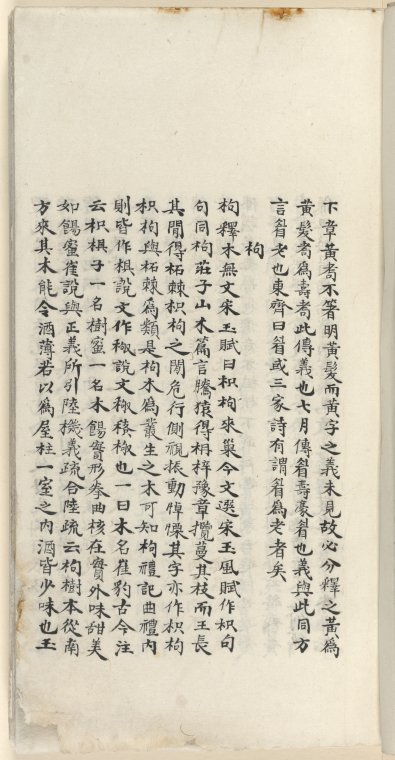 下章黃耇不箸明黃髮而黃字之義未見故必分釋之黃爲
黃髮耇爲壽耇此傳義也七月傳眉壽豪眉也義與此同方
言眉老也東齊曰眉或三家詩有謂眉爲老者矣
枸
枸釋木無文宋玉賦曰枳枸來巢今文選宋玉風賦作枳句
句同枸莊子山木篇言騰猿得枏梓豫章攬蔓其枝而王長
其閒得柘棘枳枸之閒危行側視振動悼慄其字亦作枳枸
枳枸與柘棘爲類是枸木爲叢生之木可知枸禮記曲禮內
則皆作椇說文作䅲說文䅲𥠻䅲也一曰木名崔豹古今注
云枳椇子一名樹蜜一名木餳實形拳曲核在實外味甜美
如餳蜜崔說與正義所引陸機義疏合陸疏云枸樹本從南
方來其木能令酒薄若以爲屋柱一室之內酒皆少味也玉